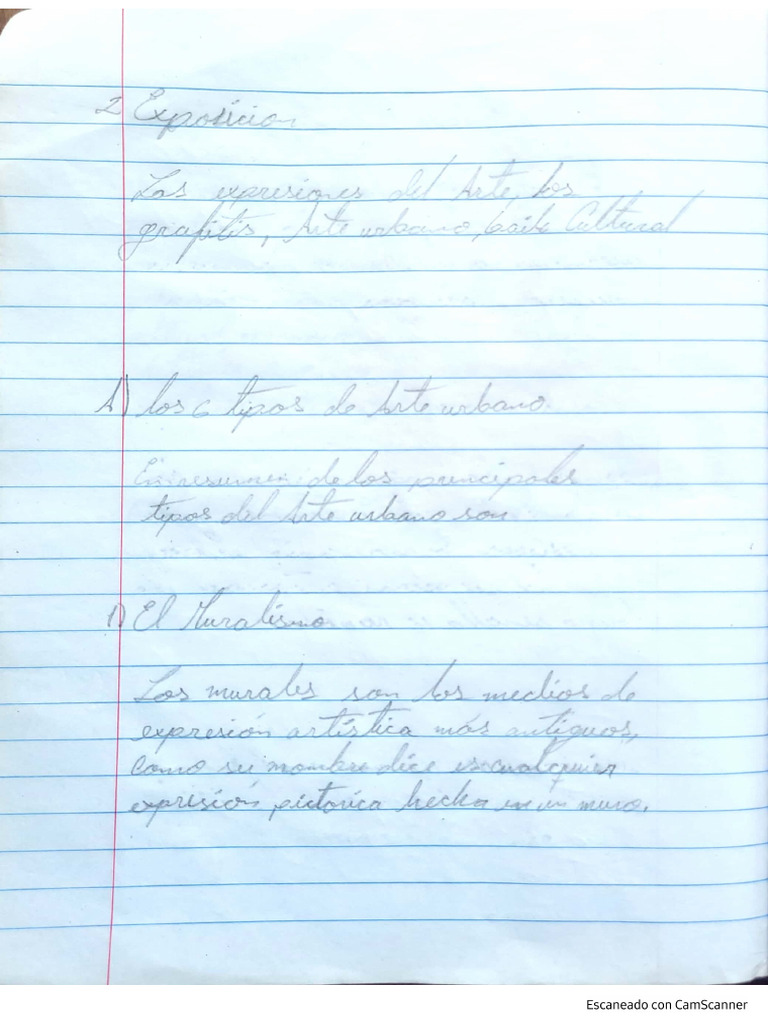 2 Exposicion
Las expresiones del Arte, los
grafitis, Arte urbano, baile Cultural
A) los 6 tipos de Arte urbano.
En resumen de los principales
tipos del Arte urbano son
1) El Muralismo
Los murales son los medios de
expresión artística más antiguos,
como su nombre dice es cualquier
expresión pictorica hecha en un muro.
Escaneado con CamScanner